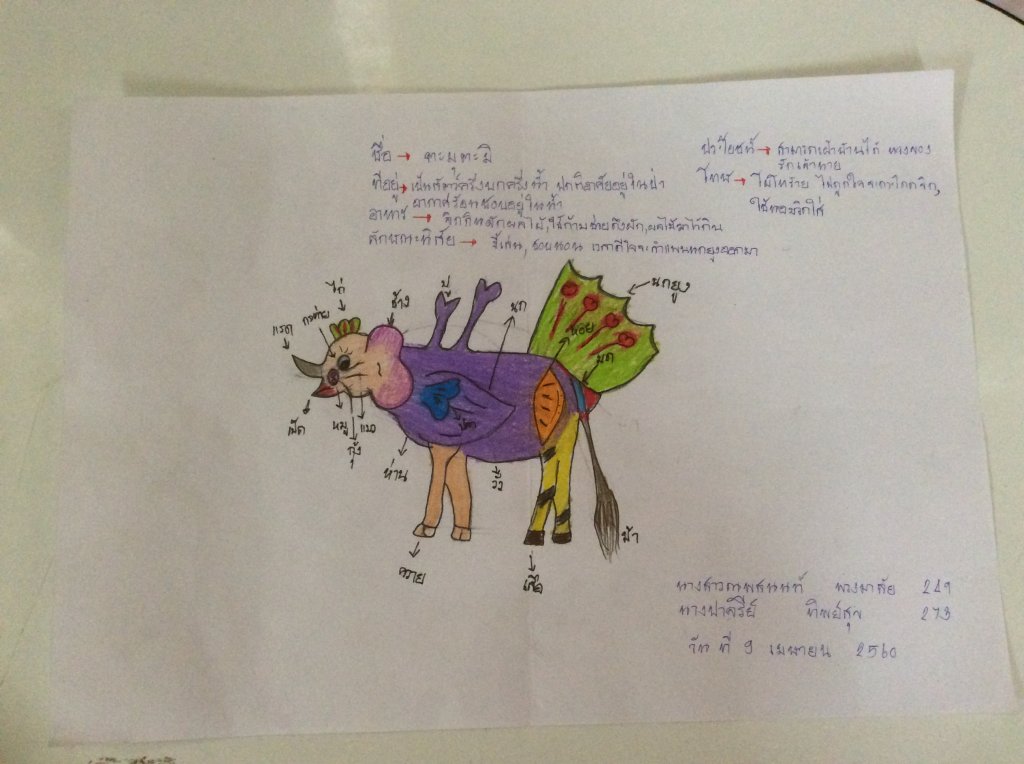 ชื่อ → ตะมุตะมิ
ที่อยู่ → เป็นสัตว์ครึ่งบกครึ่งน้ำ ปกติอาศัยอยู่ในป่า
อากาศร้อนชอบอยู่ในน้ำ
อาหาร → จิกกินผักผลไม้,ใช้ก้ามช่วยดึงผัก,ผลไม้มาไว้กิน
ลักษณะนิสัย → ขี้เล่น, ชอบนอน เวลาดีใจจะรำแพนนกยูงออกมา
ประโยชน์ → สามารถเฝ้าบ้านได้ หวงของ
รักเจ้านาย
โทษ → ไม่ถูกใจจะ
นกยูง
ไก่
ปู
ช้าง
นก
กระต่าย
แรด
หอย
มด
เป็ด
หมู
กุ้ง
แมว
ห่าน
วัว
ม้า
ควาย
เสือ
นางสาว 249
ทิพย์สุข 273
วันที่ 9 เมษายน 2560